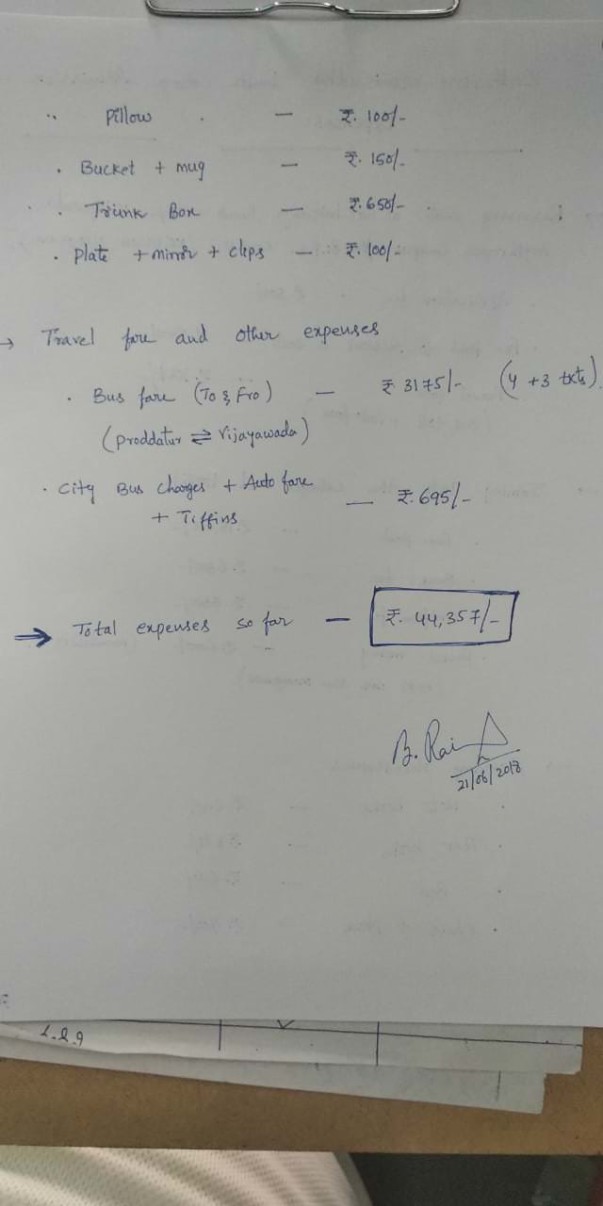 . Pillow - ₹. 100/-
. Bucket + mug - ₹. 150/-
. Trunk Box - ₹. 650/-
. Plate + mirror + clips - ₹. 100/-
→ Travel fare and other expenses
. Bus fare (To & Fro) - ₹ 3175/- (4 + 3 tkts)
(Proddatur ⇌ Vijayawada)
. City Bus Charges + Auto fare
+ Tiffins - ₹. 695/-
⇒ Total expenses so far - ₹. 44,357/-
B. Rai
21/06/2018